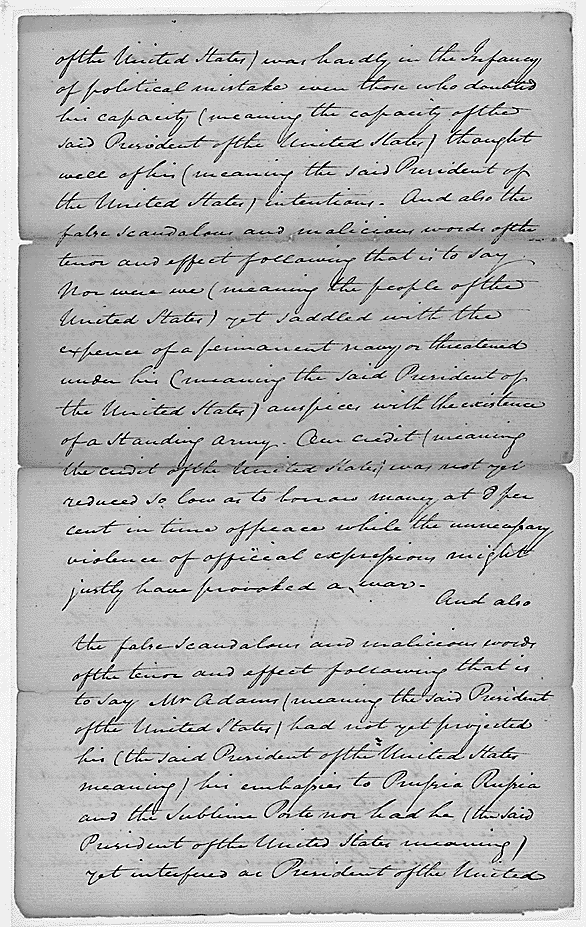 of the United States) was hardly in the Infancy
of political mistake even those who doubted
his capacity (meaning the capacity of the
said President of the United States) thought
well of his (meaning the said President of
the United States) intentions. And also the
false scandalous and malicious words of the
tenor and effect following that is to say
Nor were we (meaning the people of the
United States) yet saddled with the
expence of a permanent navy or threatened
under his (meaning the said President of
the United States) auspices with the existence
of a Standing army. Our credit (meaning
the credit of the United States) was not yet
reduced so low as to borrow money at 8 per
cent in time of peace while the unnecessary
violence of official expressions might
justly have provoked a war.
And also
the false scandalous and malicious words
of the tenor and effect following that is
to say Mr Adams (meaning the said President
of the United States) had not yet projected
his (the said President of the United States
meaning) his embassies to Prussia Russia
and the Sublime Porte nor had he (the said
President of the United States meaning)
yet interfered as President of the United